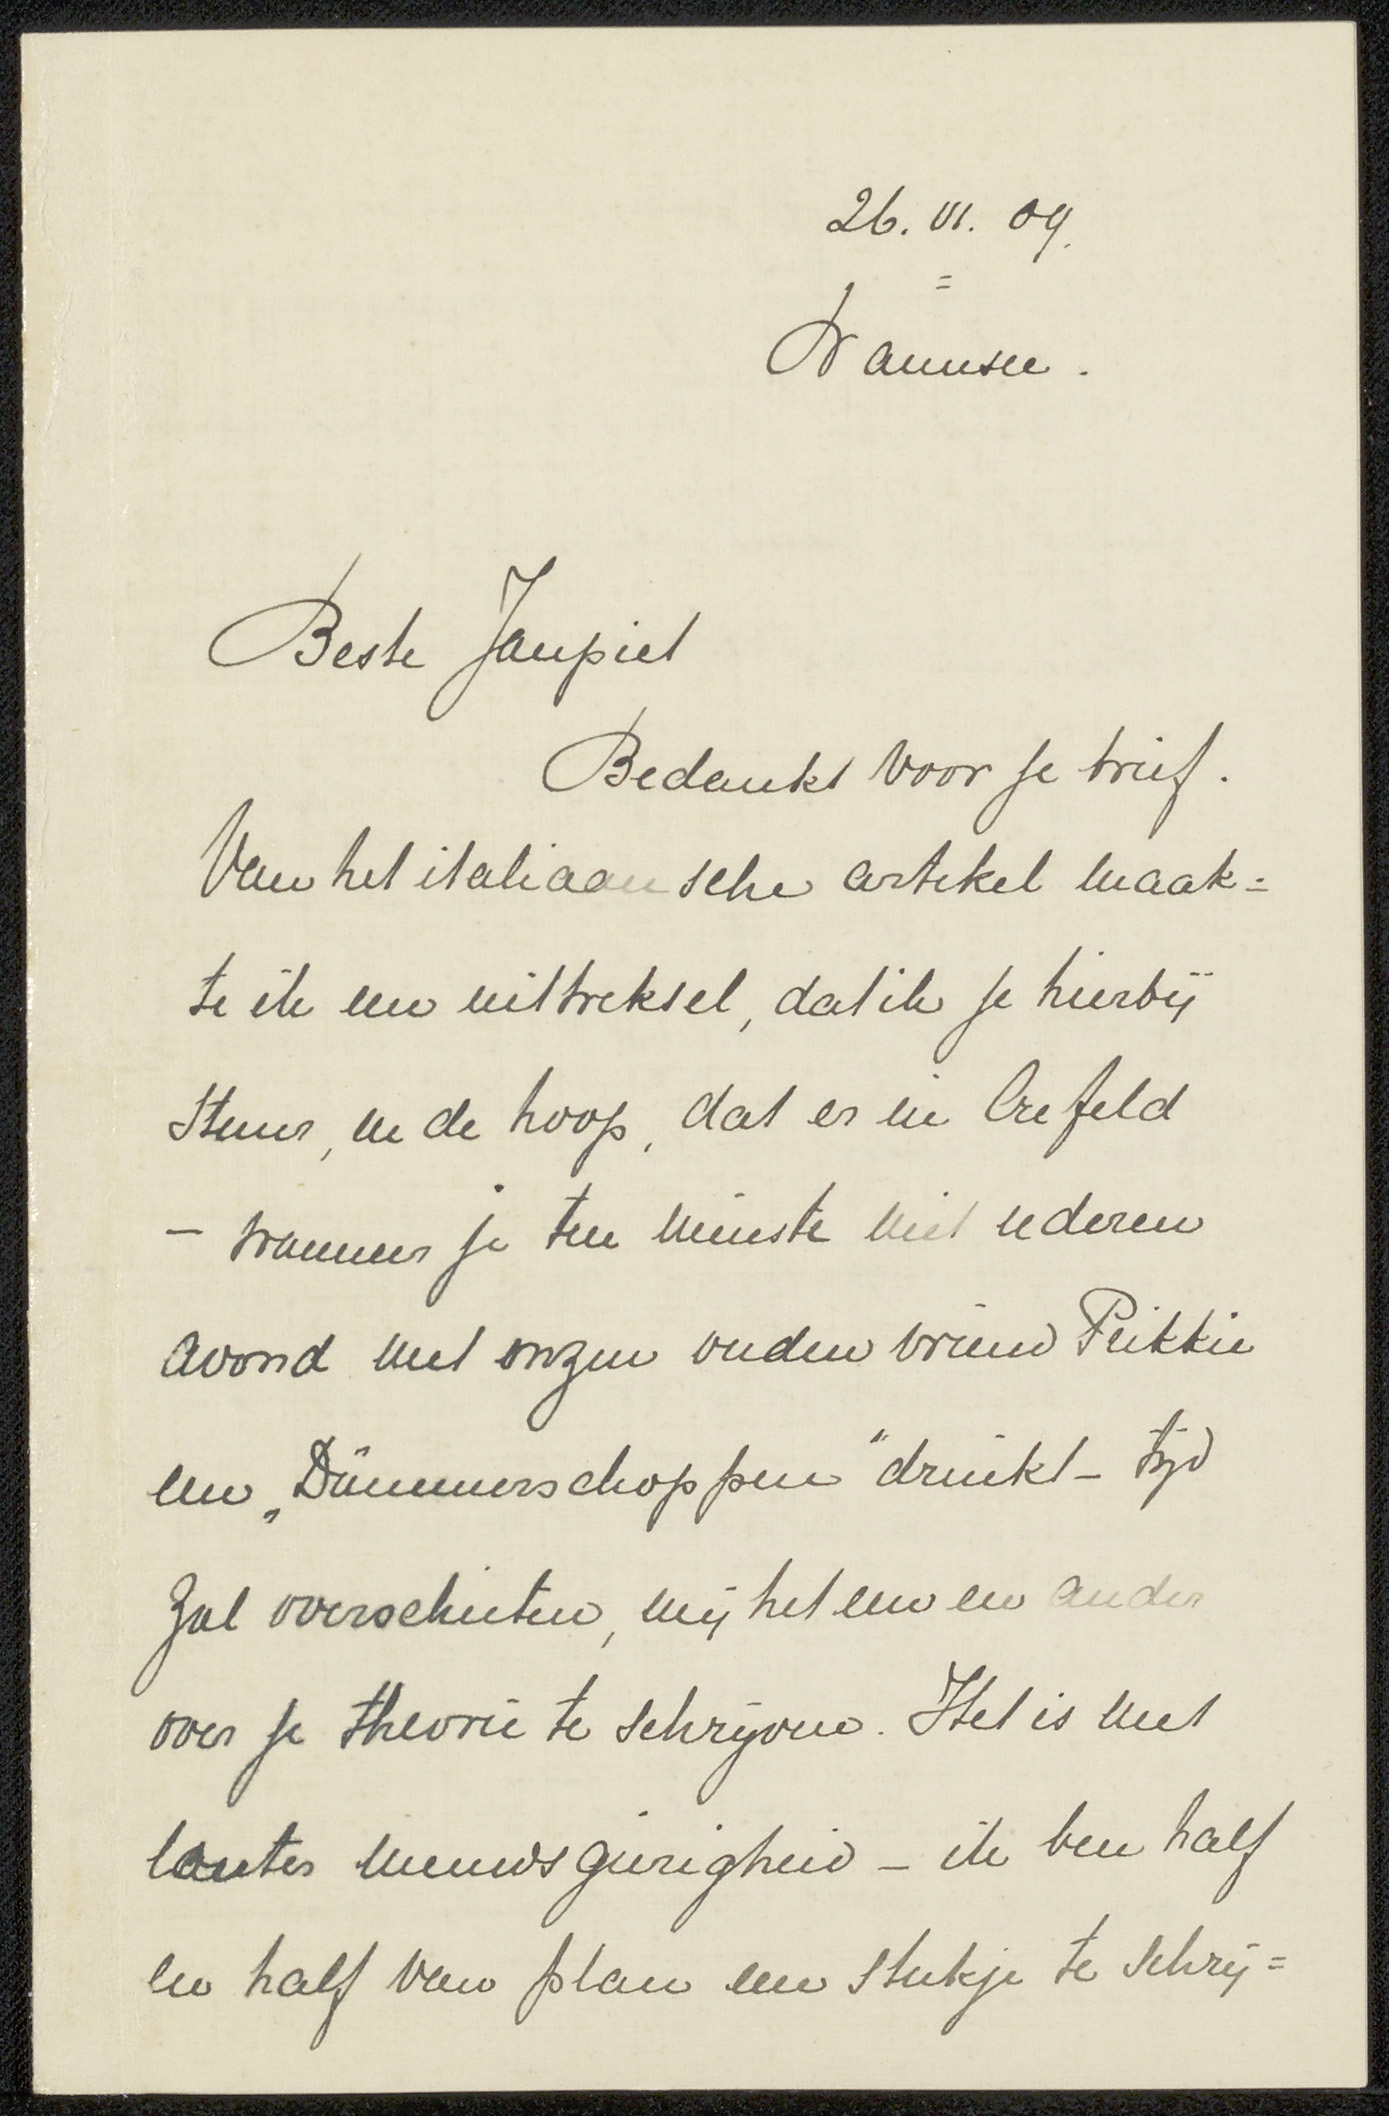 26. VI. 09.
=
Wannsee.
Beste Janpiet
Bedankt voor je brief.
Van het italiaansche artikel maak=
te ik een uittreksel, dat ik je hierbij
stuur, in de hoop, dat er in Crefeld
— wanneer je ten minste niet iederen
avond met onzen ouden vriend Pikkie
een „Dämmerschoppen" drinkt — tijd
zal overschieten, mij het een en ander
over je theorie te schrijven. Het is niet
louter nieuwsgierigheid — ik ben half
en half van plan een stukje te schrij=